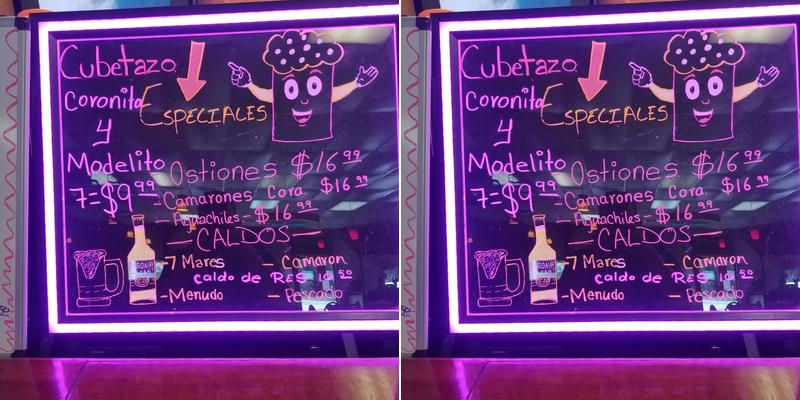 Cubetazo
Coronita
y
Modelito
7=$9.99
Especiales
Ostiones $16.99
- Camarones Cora. $16.99
- Aguachiles - $16.99
- CALDOS -
- 7 Mares - Camaron
caldo de RES
- Menudo - Pescado
Cubetazo
Coronita
y
Modelito
7=$9.99
Especiales
Ostiones $16.99
- Camarones Cora. $16.99
- Aguachiles - $16.99
- CALDOS -
- 7 Mares - Camaron
caldo de RES
- Menudo - Pescado